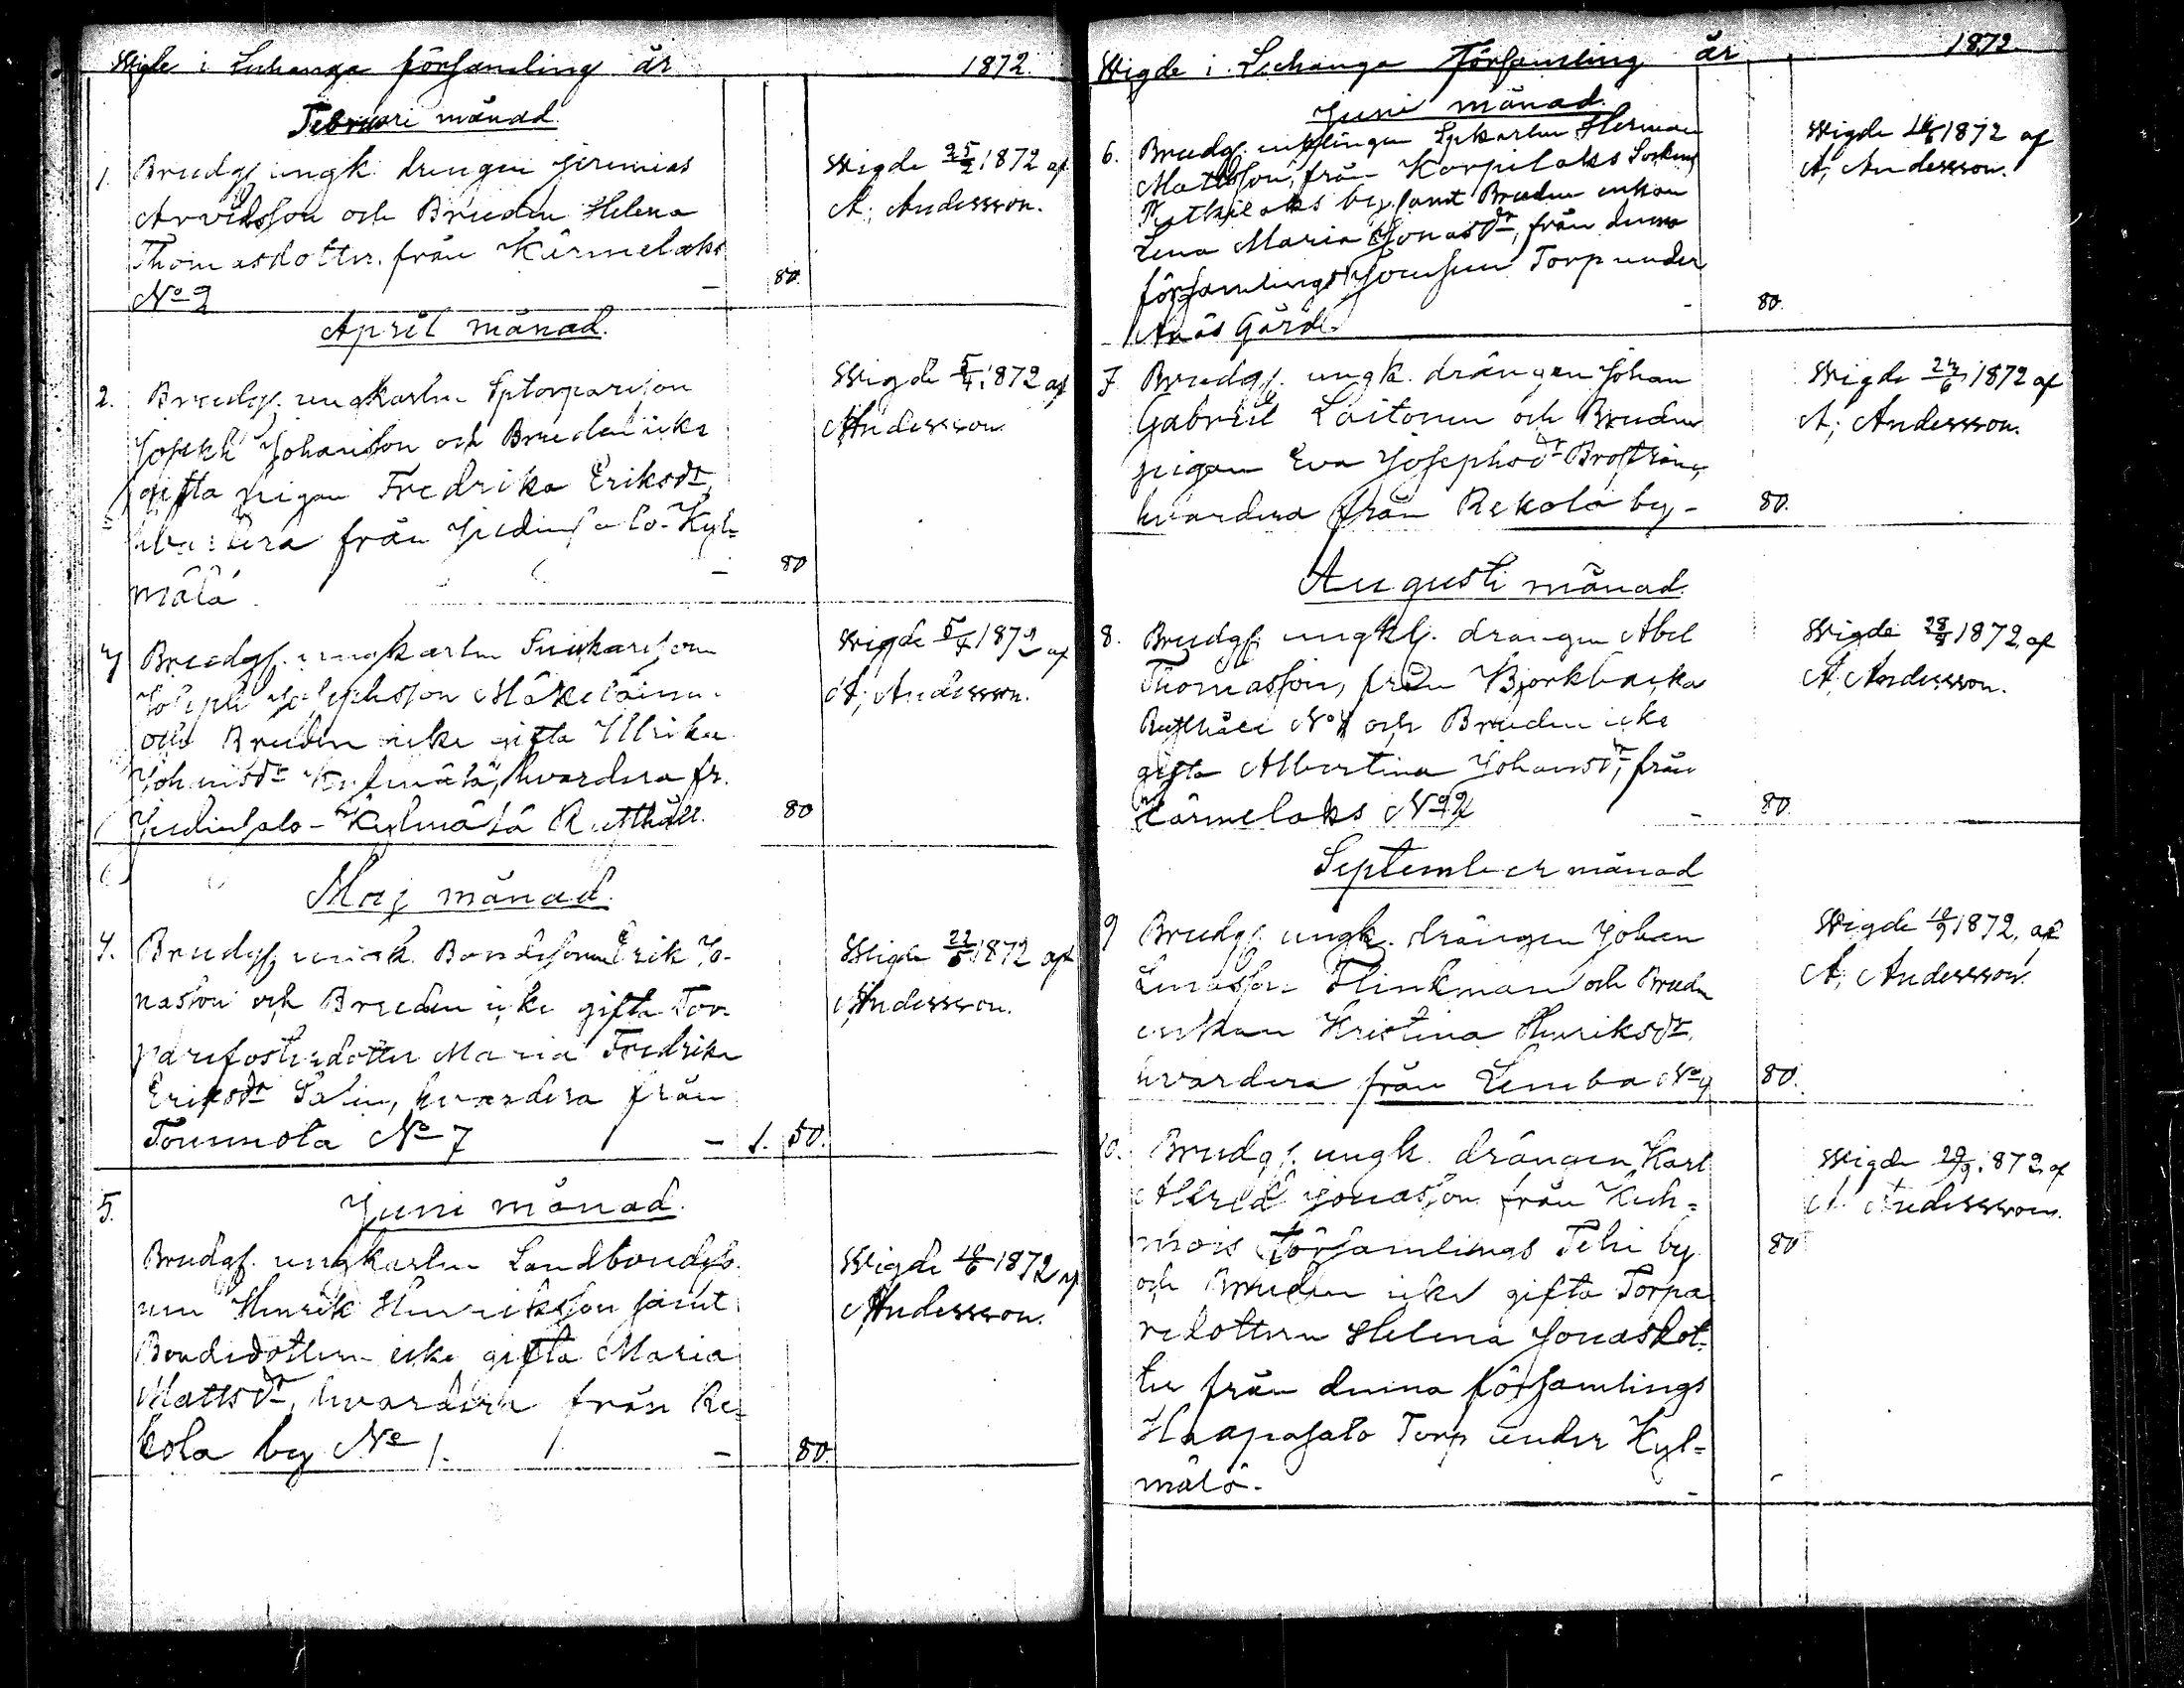 Wigde i Luhanga församling år 1872.
Februari månad.
1. Brudg. ungk. drengen Jeremias
Arvidsson och Bruden Helena
Thomasdotter från Kärmelaks
No 2 - 80.
Wigde 25/2 1872 af
A. Andersson.
April månad.
2. Brudgf. ungkarlen
Joseph Johansson och Bruden icke
gifta pigan Fredrika Eriksdr,
hvardera från Judinsalo-Kyl=
mälä - 80
Wigde 5/4 1872 af
Andersson
Brudgf. ungkarlen
Joseph Josephsson Mäkeläinen
och Bruden icke gifta Ulrika
Johansdr Kylmälä, hvardera fr.
Judinsalo-Kylmälä Rusthåll. 80
Wigde 5/4 1872 af
A. Andersson.
Maj månad.
4. Brudgf. ungk. Bondesonen Erik Jo-
nasson och Bruden icke gifta Tor-
parefosterdotter Maria Fredrika
Eriksdr Salin, hvardera från
Tommola No 7 - 1. 50.
Wigde 22/5 1872 af
Andersson.
5. Juni månad.
Brudgf. ungkarlen Landbondeso-
nen Henrik Henriksson samt
Bondedottern icke gifta Maria
Mattsdr, hvardera från Re=
kola by No 1. - 80.
Wigde 16/6 1872 af
Andersson.
Wigde i Luhanga Församling år 1872.
Juni månad.
6. Brudg. enklingen Herman
Mattsson, från Korpilaks Socken,
by, samt Bruden enkan
Lena Maria Jonasdr, från denna
församlings Torp under
Anäs Gård. - 80.
Wigde 1872 af
A. Andersson.
7. Brudgf. ungk. drängen Johan
Gabriel Laitonen och Bruden
pigan Eva Josephsdr Broström,
hvardera från Rekola by - 80.
Wigde 24/6 1872 af
A. Andersson.
Augusti månad.
8. Brudgf. ungkl. drängen Abel
Thomasson, från Björkbacka
Rusthåll No 4 och Bruden icke
gifta Albertina Johansdr, från
Kärmelaks No 2 - 80.
Wigde 28/8 1872 af
A. Andersson.
September månad
9 Brudgf. ungk. drängen Johan
Flinkman och Bruden
enkan Kristina Henriksdr.
hvardera från Lemba No 9 80.
Wigde 1872, af
A. Andersson.
10. Brudgf. ungk. drängen Karl
Alfred Jonasson från Kuh=
mois Församlings Tehi by 80
och Bruden icke gifta Torpa-
redottern Helena Jonasdot-
ter från denna församlings
Haapasalo Torp under Kyl=
mälä. -
Wigde 29/9 1872 af
A. Andersson.